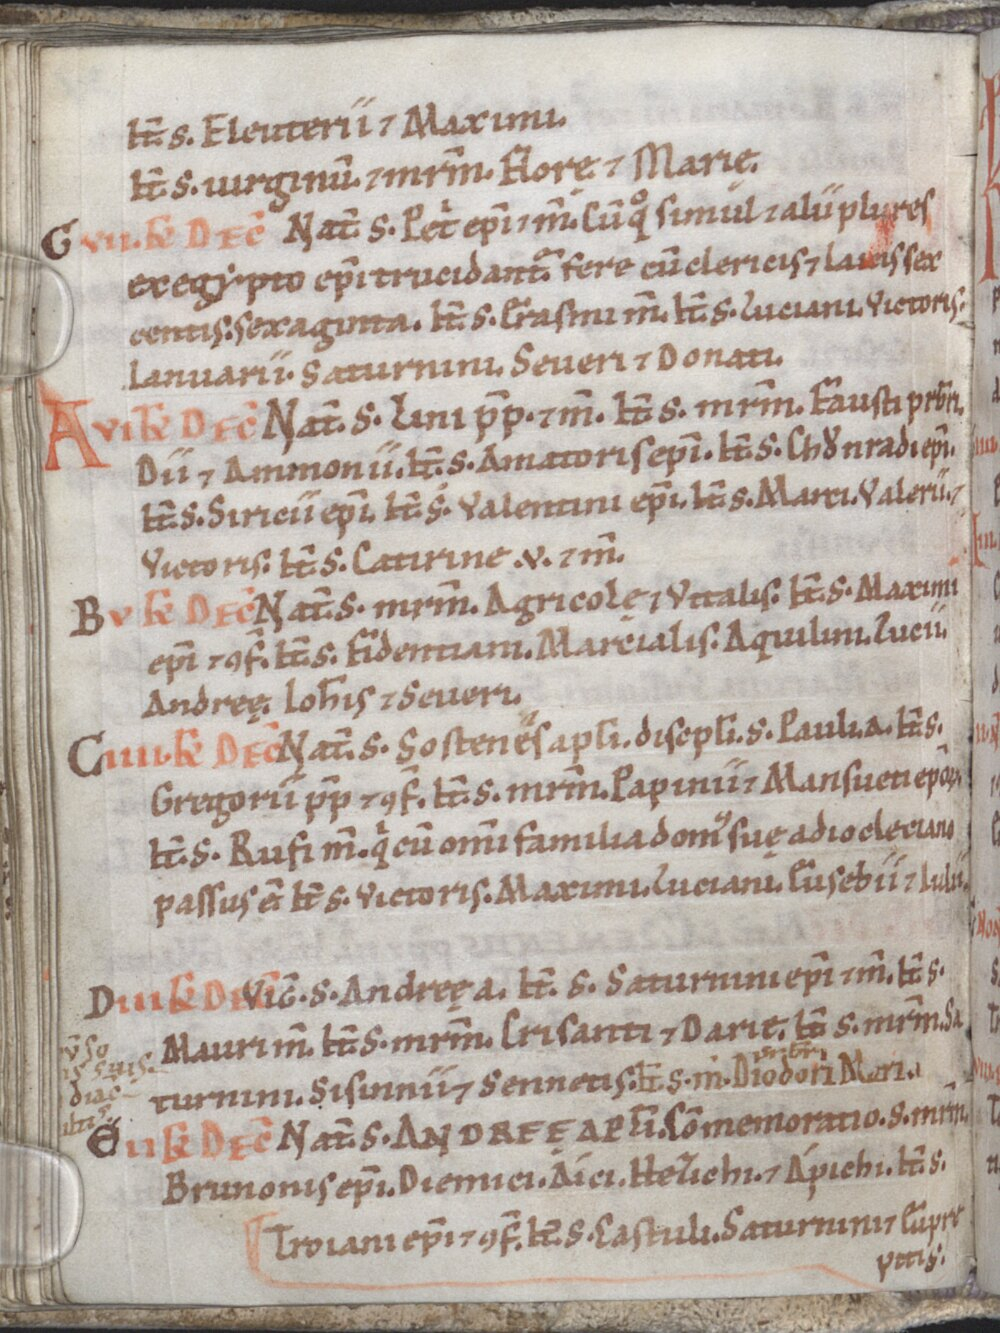 It̄ s. Eleuterii ⁊ Maximi.
It̄ s. uirginū. ⁊ mr̄m. Florę ⁊ Marię.
G VII. k̄ DEC̄ Nat̄. s. Pet epī ⁊ m̄. Cū q simul ⁊ alii plures
ex egypto epī trucidant̄. fere cū clericis ⁊ laicis sex
centis. sexaginta. It̄. s. Erasmi m̄. It̄. s. Luciani. Victoris.
Ianuarii. Saturnini. Seueri ⁊ Donati.
A VI k̄ DEC̄ Nat̄. s. Lini p̄p. ⁊ m̄. It̄ s. mr̄m. Fausti pr̄bri.
Dii ⁊ Ammonii. It̄. s. Amatoris epī. It̄. s. Chǒnradi epī.
It̄. s. Siricii epī. It̄ s. Valentini epī. It̄ s. Marci. Valerii. ⁊
Victoris. It̄ s. Catirine .v. ⁊ m̄.
B V k̄ DEC̄ Nat̄. s. mr̄m. Agricolę ⁊ Vitalis. It̄ s. Maximi
epī ⁊ ꝯf̄. It̄ s. Fidentiani. Marcialis. Aquilini. Lucii.
Andreę. Ioh̄is ⁊ Seueri.
C IIII. k̄ DEC̄ Nat̄. s. Sostenes apl̄i. discipl̄i. s. Pauli. a. It̄ s.
Gregorii p̄p ⁊ ꝯf̄. It̄ s. mr̄m. Papinii ⁊ Mansueti ep̄oꝝ.
It̄. s. Rufi m̄. q cū om̄i familia domꝰ suę a diocleciano
passus ē. It̄ s. Victoris. Maximi. Luciani. Eusebii ⁊ Iulii.
D III k̄ DEC̄ Vig̅. s. Andreę a. It̄. s. Saturnini epī ⁊ m̄. It̄ s.
Mauri m̄. It̄ s. mr̄m. Crisanti ⁊ Darię. It̄ s. mr̄m. Sa
turnini. Sisinnii ⁊ Sennetis. It̄ s. m̄. Diodori Mari.
E II k̄ DEC̄ Nat̄. s. ANDREE APL̄I. Cōmemoratio. s. mr̄m.
Brunonis epī. Diemici. Aici. Hetichi. ⁊ Apichi. It̄ s.
Troiani epī ⁊ ꝯf̄. It̄ s. Castuli. Saturnini ⁊ Eupre
pitis.